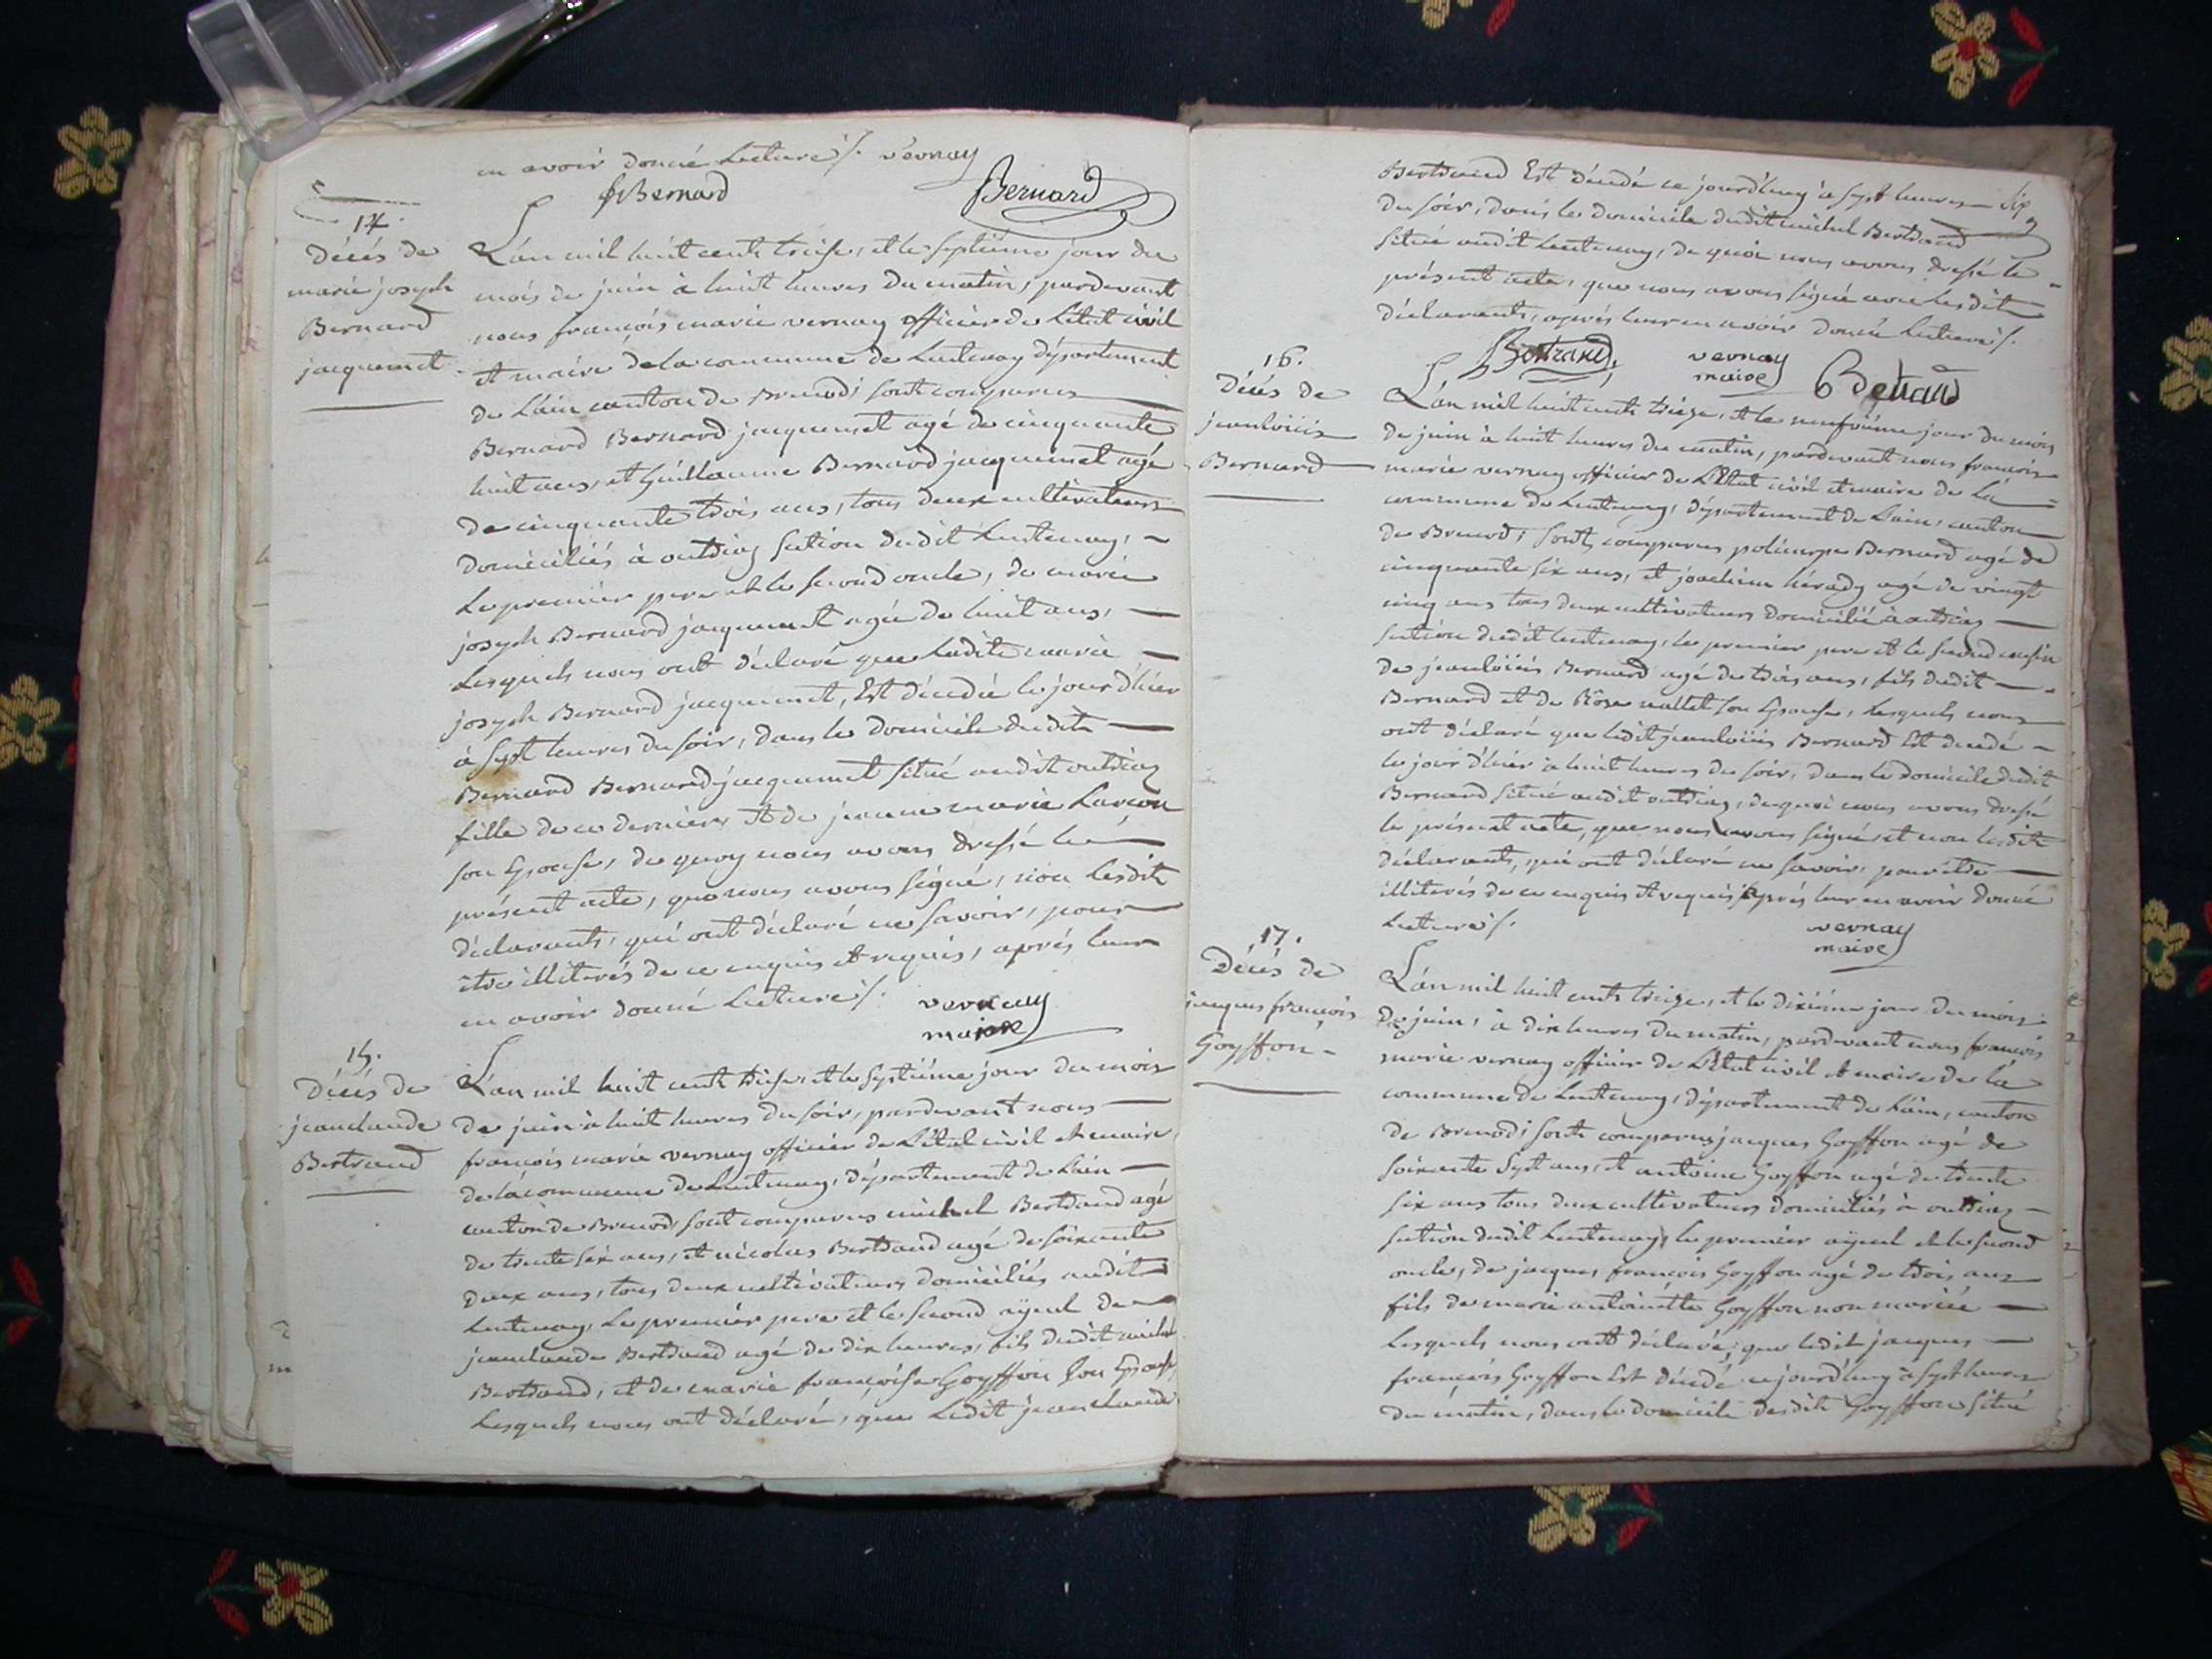 en avoir donné Lecture ./. vernay
JBernard Bernard
14
Décés de
marie joseph
Bernard
jacquemet
L'an mil huit cents treise, et le septiéme jour du
mois de juin à huit heures du matin, pardevant
nous françois marie vernay officier de L'état civil
et maire de la commune de Lentenay département
de L'ain canton de Brenod; sont comparus
Bernard Bernard jacquemet agé de cinquante
huit ans, et Guillaume Bernard jacquemet agé
de cinquante trois ans, tous deux cultivateurs
domiciliés à outriaz section dudit Lentenay,
Le premier pere et le second oncle, de marie
joseph Bernard jacquemet agée de huit ans,
Lesquels nous ont déclaré que Ladite marie
joseph Bernard jacquemet, Est décedée le jour d'hier
à sept heures du soir, dans le domicile dudit
Bernard Bernard jacquemet situé audit outriaz
fille de ce dernier, et de jeanne marie Larçon
son Epouse, de quoy nous avons dressé le
présent acte, que nous avons signé, non lesdits
déclarants, qui ont déclaré ne savoir, pour
être illiterés de ce enquis et requis, après leur
en avoir donné Lecture ./. vernay
maire
15.
Décés de
jeanclaude
Bertrand
L'an mil huit cents treise et le septiéme jour du mois
de juin à huit heures du soir, pardevant nous
françois marie vernay officier de L'état civil et maire
de la commune de Lentenay, département de L'ain
canton de Brenod, sont comparus michel Bertrand agé
de trente six ans, et nicolas Bertrand agé de soixante
deux ans, tous deux cultivateurs domiciliés audit
Lentenay, Le premier pere et le second ayeul de
jeanclaude Bertrand agé de dix heures, fils dudit michel
Bertrand, et de marie françoise Goyffon son Epouse
Lesquels nous ont déclaré, que Ledit jeanclaude
Bertrand Est décedé ce jourd'huy à sept heures
du soir, dans le domicile dudit michel Bertrand
situé audit Lentenay, de quoi nous avons dressé le
présent acte, que nous avons signé avec lesdits
déclarants, après leur en avoir donné Lecture ./.
Bertrand vernay
maire Bertrand
16.
Décés de
jeanloüis
Bernard
L'an mil huit cents treize, et le neufvième jour du mois
de juin à huit heures du matin, pardevant nous françois
marie vernay officier de L'état civil et maire de la
commune de Lentenay, département de L'ain, canton
de Brenod; sont comparus policarpe Bernard agé de
cinquante six ans, et joachim hérady agé de vingt
cinq ans tous deux cultivateurs domicilié à outriaz
section dudit Lentenay, le premier pere et le second cousin
de jeanloüis Bernard agé de trois ans, fils dudit
Bernard et de Rose vallet son Epouse, Lesquels nous
ont déclaré que ledit jeanloüis Bernard Est decedé
le jour d'hier à huit heures du soir, dans le domicile dudit
Bernard situé audit outriaz, de quoi nous avons dressé
le présent acte, que nous avons signé, et non lesdits
déclarants, qui ont déclaré ne savoir, pour être
illiterés de ce enquis et requis après leur en avoir donné
Lecture ./. vernay
maire
17.
Décés de
jacques françois
Goyffon
L'an mil huit cents treize, et le dixième jour du mois
de juin, à dix heures du matin, pardevant nous françois
marie vernay officier de L'état civil et maire de la
commune de Lentenay, département de L'ain, canton
de Brenod; sont comparus jacques Goyffon agé de
soixante sept ans, et antoine Goyffon agé de trente
six ans tous deux cultivateurs domiciliés à outriaz
section dudit Lentenay, le premier ayeul et le second
oncle, de jacques françois Goyffon agé de trois ans
fils de marie antoinette Goyffon non mariée
Lesquels nous ont déclaré, que ledit jacques
françois Goyffon Est décedé ce jourd'huy à sept heures
du matin, dans le domicile desdits Goyffon situé